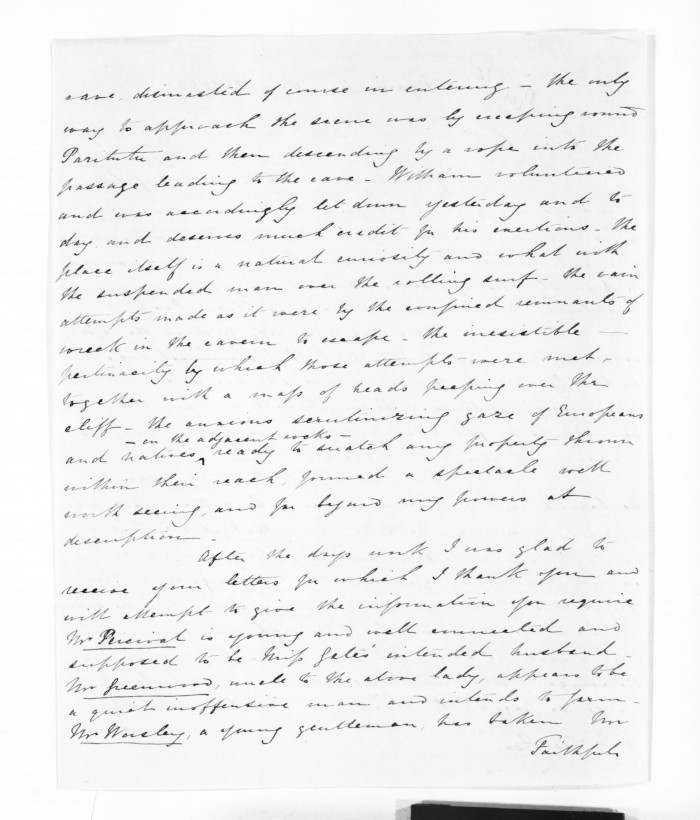 cave, dismasted of course in entering - the only
way to approach the scene was by creeping round
Paritutu and then descending by a rope into the
passage leading to the cave - William volunteered
and was accordingly let down yesterday and to
day, and deserves much credit for his exertions - the
place itself is a natural curiosity and what with
the suspended man over the rolling surf - the vain
attempts made as it were by the confined remnants of
wreck in the cavern to escape - the irresistible -
pertinacity by which those attempts were met,
together with a mass of heads peeping over the
cliff - the anxious scrutinizing gaze of Europeans
- on the adjacent rocks -
and natives ^ ready to snatch any property thrown
within their reach, formed a spectacle well
worth seeing, and far beyond my powers at
description -
After the days work I was glad to
receive your letters for which I thank you and
will attempt to give the information you require
Mr Percival is young and well connected and
supposed to be Miss Gates' intended husband -
Mr Greenwood, uncle to the above lady, appears to be
a quiet inoffensive man and intends to farm -
Mr Worsley, a young gentleman, has taken Mr
Faithfuls